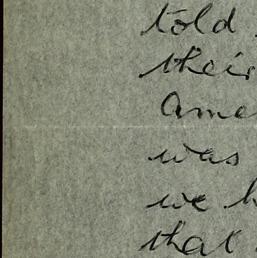 told
their
Ame
was
we h
that